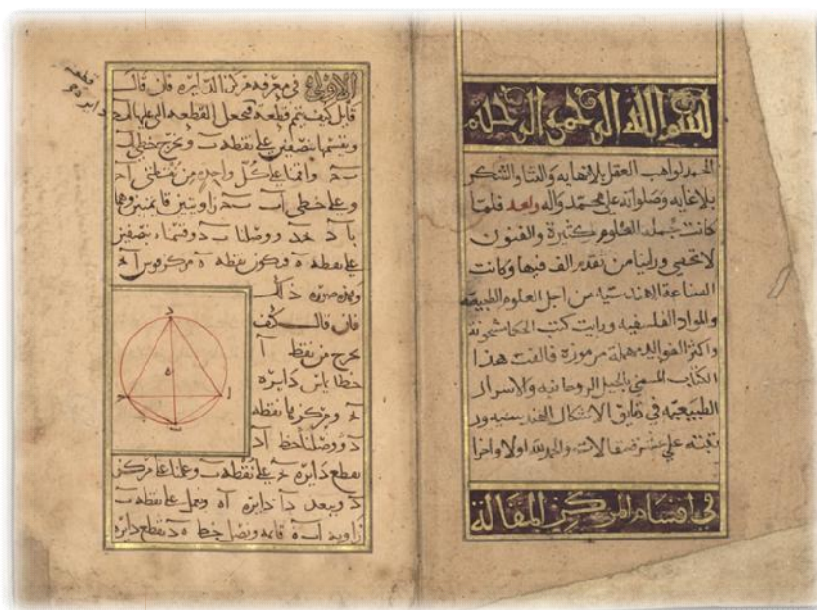 بسم الله الرحمن الرحيم
الحمد لواهب العقل بلا نهايه والثنا والشكر
بلا غايه وصلواته على محمد واله وبعد فلما
كانت جملة العلوم كثيرة والفنون
لا تحصى وراينا من تقدم الف فيها وكانت
الصناعة الهندسيه من اجل العلوم الطبيعيه
والمواد الفلسفيه ورايت كتب الحكما مشحونة
واكثر الفوايد مهملة مرموزة فالفت هذا
الكتاب المسمى بالحيل الروحانيه والاسرار
الطبيعيه في دقايق الاشكال الهندسيه ور
تبته على عشر مقالات والحمد لله اولا واخرا
في اقسام المركز المقالة
الاولى في معرفه مركز الدايره فان قال
قايل كيف نتم قطعة فنجعل القطعه التي عليها
ونقسمها بنصفين على نقطه ب ونخرج خطي اب
ب ج واقمنا على كل واحده من نقطتي ا ج
وعلى خطي اب ب ج زاويتين قايمتين وهما
ب ا د ووصلنا ب د وقسمناه بنصفين
على نقطه ه فيكون نقطه ه مركز قوس
وهذه صورة ذلك
فان قال كيف
نخرج من نقطه ا
خطا يماس دايره
ومركزها نقطه
د ووصلنا خط ا د
نقطع دايره على نقطه ب وعملنا على مركز
د وببعد د ا دايره ا ه ونعمل على نقطه ب
زاويه قايمه ونصل خط ه د نقطع دايره
قطعة
دايره